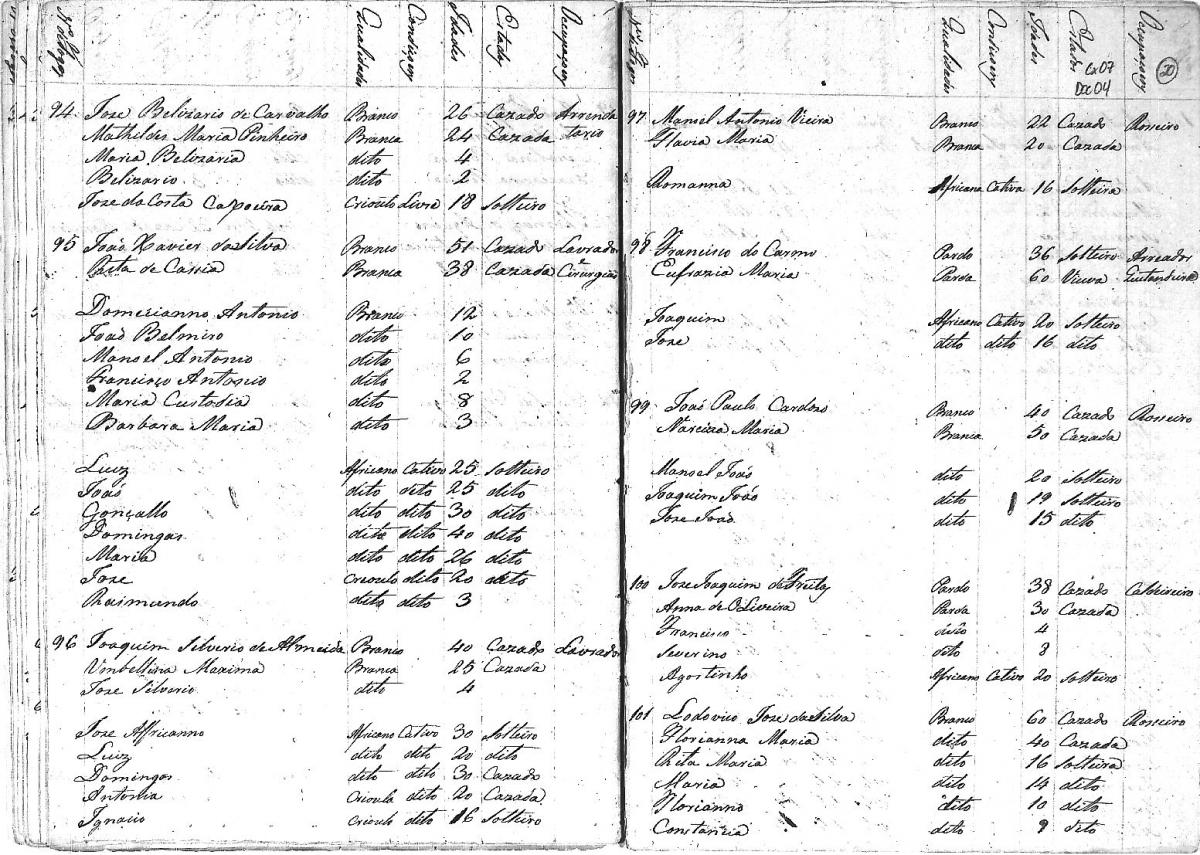 Nos de fogos Qualidades Condissoy Idades Estado Occupasoy
94 Joze Belizario de Carvalho Branco 26 Cazado Arrenda
Mathildes Maria Pinheiro Branca 24 Cazada tario
Maria Belizaria dito 4
Belizario dito 2
Joze da Costa Capoeira Crioulo Livre 18 Solteiro
95 Joaõ Xavier da Silva Branco 51 Cazado Lavrador
Rita de Cassia Branca 38 Cazada e Cirurgiaõ
Domerianno Antonio Branco 12
Joaõ Belmiro dito 10
Manoel Antonio dito 6
Francisco Antonio dito 2
Maria Custodia dito 8
Barbara Maria dito 3
Luiz Africano Cativo 25 Solteiro
Joaõ dito dito 25 dito
Gonçallo dito dito 30 dito
Domingos dito dito 40 dito
Maria dito dito 26 dito
Joze Crioulo dito 20 dito
Raimundo dito dito 3
96 Joaquim Silverio de Almeida Branco 40 Cazado Lavrador
Umbellina Maxima Branca 25 Cazada
Joze Silverio dito 4
Joze Affricanno Africano Cativo 30 Solteiro
Luiz dito dito 20 dito
Domingos dito dito 30 Cazado
Antonia Crioula dito 20 Cazada
Ignacio Crioulo dito 16 Solteiro
Qualidades Condissoy Idades Estados Occupasoy 20
Cx 07
Doc 04
97 Manoel Antonio Vieira Branco 22 Cazado Rosseiro
Flavia Maria Branca 20 Cazada
Romanna Africana Cativa 16 Solteira
98 Francisco do Carmo Pardo 36 Solteiro Arreador
Eufrazia Maria Parda 60 Viuva
Joaquim Africano Cativo 20 Solteiro
Joze dito dito 16 dito
99 Joaõ Paulo Cardozo Branco 40 Cazado Rosseiro
Narciza Maria Branca 50 Cazada
Manoel Joaõ dito 20 Solteiro
Joaquim Joaõ dito 19 Solteiro
Joze Joaõ dito 15 dito
100 Joze Joaquim de Pardo 38 Cazado Caldeireiro
Anna de OLiveira Parda 30 Cazada
Francisco dito 4
Severino dito 8
Agostinho Africano Cativo 20 Solteiro
101 Lodovico Joze da Silva Branco 60 Cazado Rosseiro
Florianna Maria dito 40 Cazada
Rita Maria dito 16 Solteira
Maria dito 14 dito
Florianno dito 10 dito
Constancia dito 9 dito